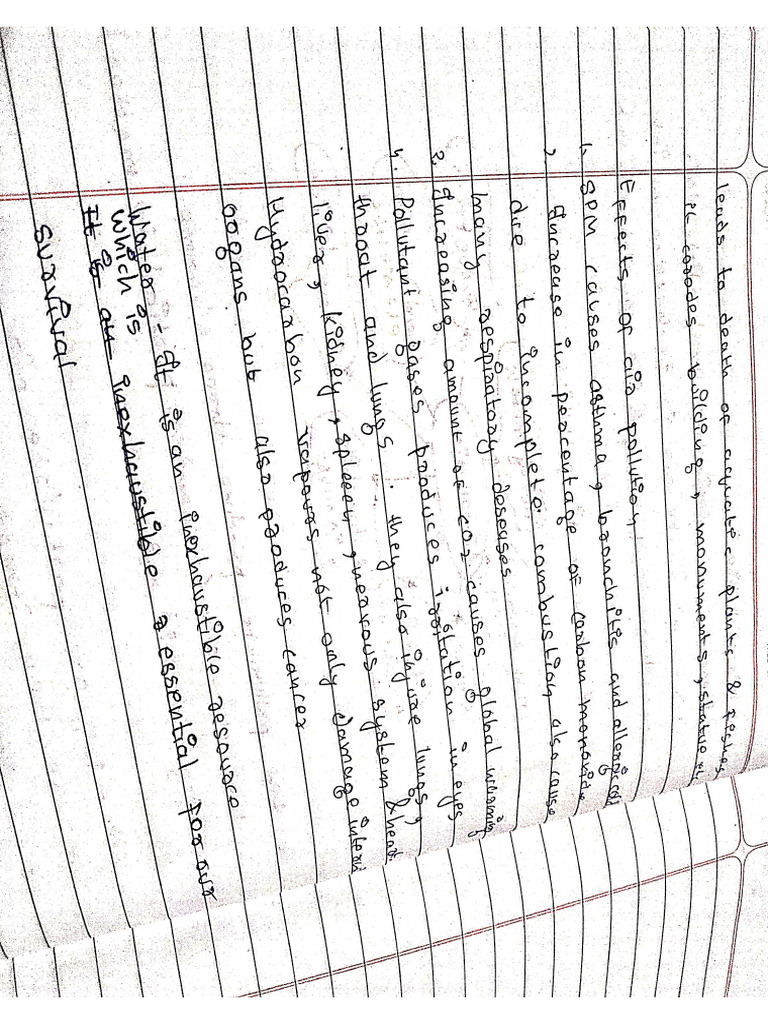 leads to death of aquatic plants & fishes
it corodes building, monuments, statues
Effects of air pollution
1. SPM causes asthma, bronchitis and allergic
2 Increase in percentage of carbon monoxide
due to incomplete combustion also cause
many respiratory deseases
3. Increasing amount of co2 causes global warming
4. Pollutant gases produces irritation in eyes
throat and lungs. they also injure lungs,
liver, kidney, spleen, nervous system & heart
Hydrocarbon vapours not only damage internal
organs but also produces cancer
Water - It is an inexhaustible resource
which is
It is an inexhaustible essential for our
survival